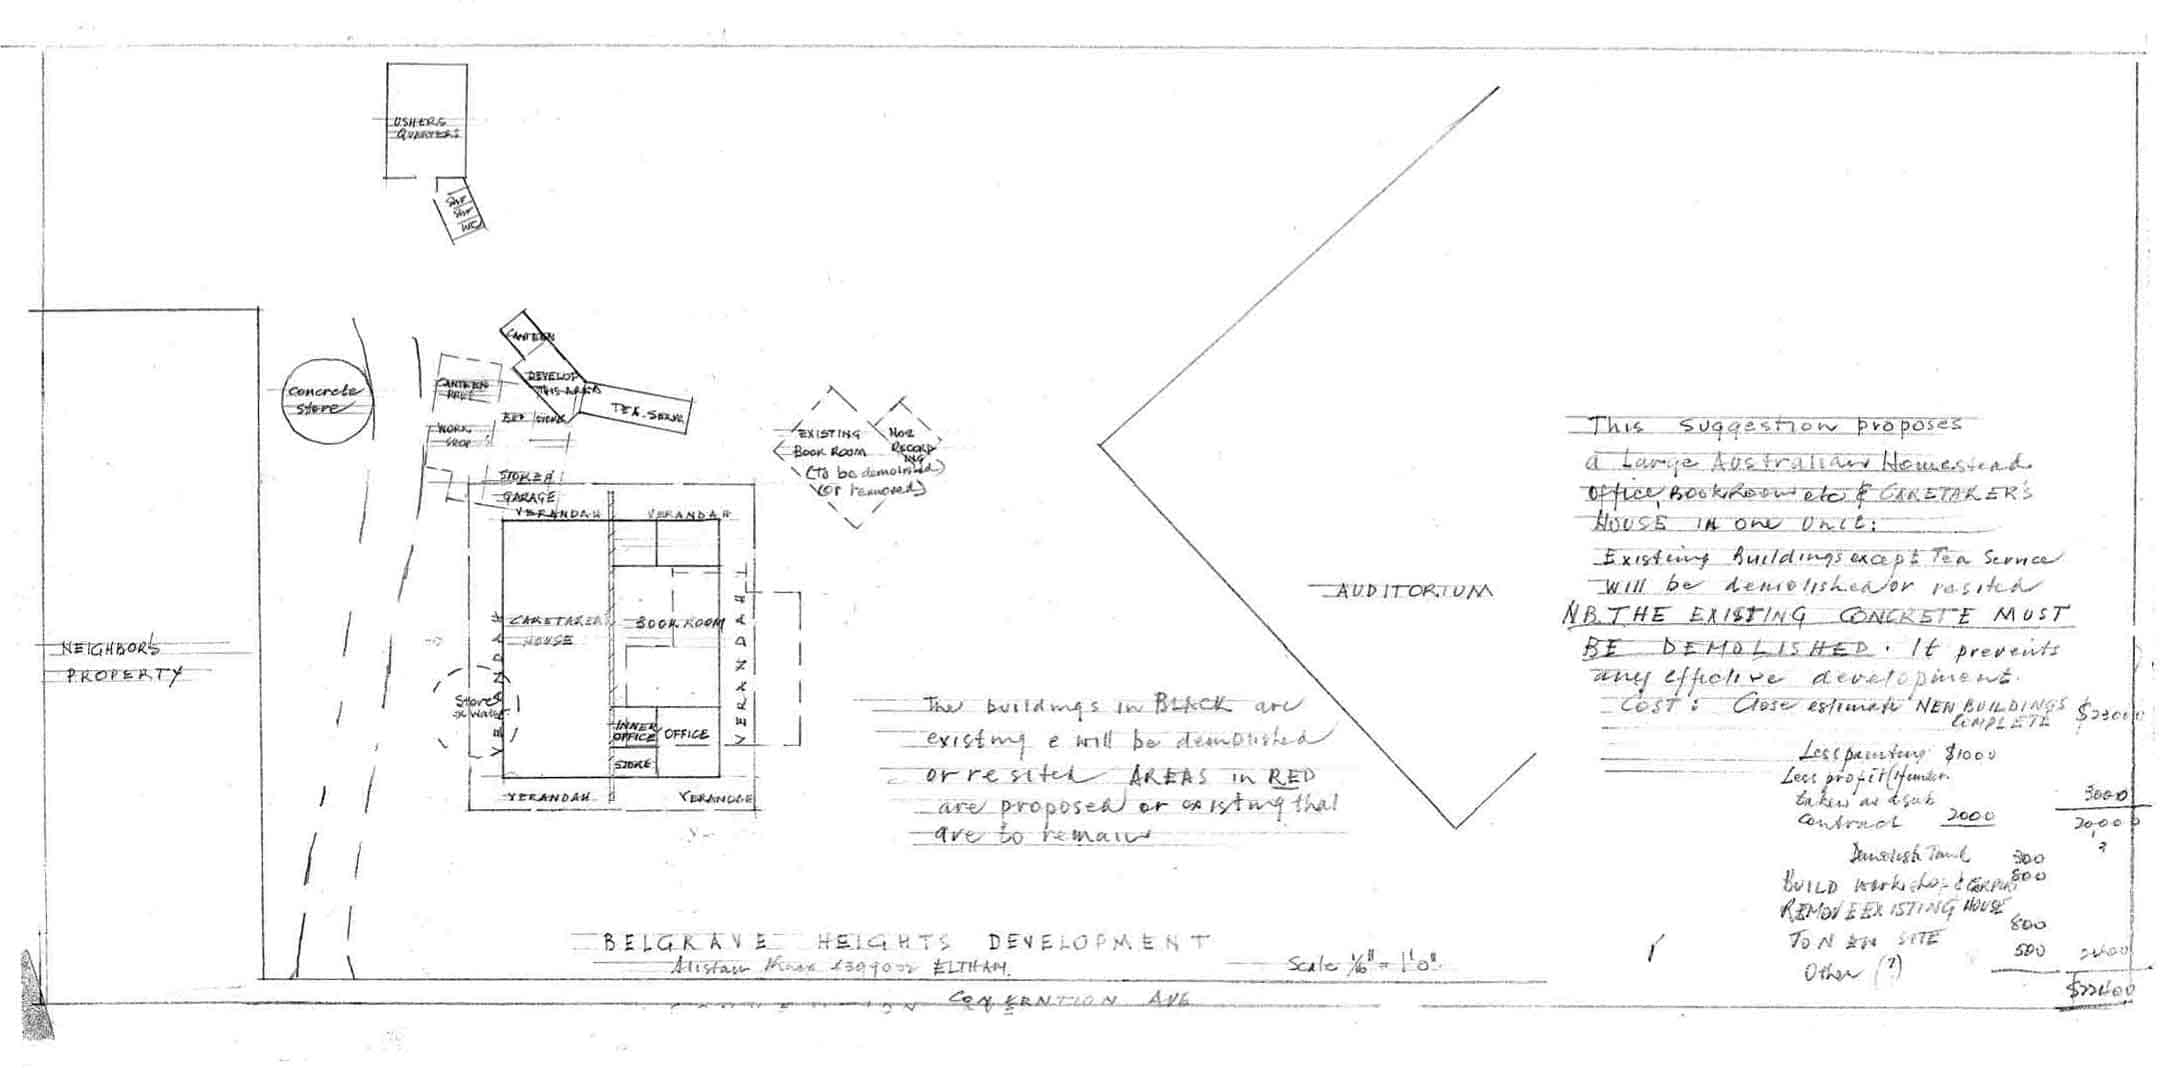 USHERS
QUARTERS
WC
CANTEEN
DEVELOP
THIS AREA
TEA SERV.
Concrete
Store
CANTEEN
WORK
SHOP
STORE
GARAGE
VERANDAH
VERANDAH
EXISTING
BOOK ROOM
(To be demolished)
(or removed)
RECORD
ING
CARETAKERS
HOUSE
BOOK ROOM
VERANDAH
VERANDAH
Store
INNER
OFFICE
OFFICE
STORE
VERANDAH
NEIGHBORS
PROPERTY
AUDITORIUM
The buildings in BLACK are
existing & will be demolished
or resited AREAS in RED
are proposed or existing that
are to remain
This suggestion proposes
a Large Australian Homestead
Office, BOOKROOM etc & CARETAKER'S
HOUSE IN one Unit:
Existing Buildings except Tea Service
will be demolished or resited
NB. THE EXISTING CONCRETE MUST
BE DEMOLISHED. It prevents
any effective development.
COST: Close estimate NEW BUILDINGS
COMPLETE $23000
Less painting $1000
Less profit
taken as a sub
contract 2000 3000
20,000
?
Demolish Tank 300
BUILD workshop & CARPORT 800
REMOVE EXISTING HOUSE
TO NEW SITE 800
Other (?) 500 2400
$22400
BELGRAVE HEIGHTS DEVELOPMENT
Alistair ELTHAM.
Scale 1/16" = 1'0"
AVE